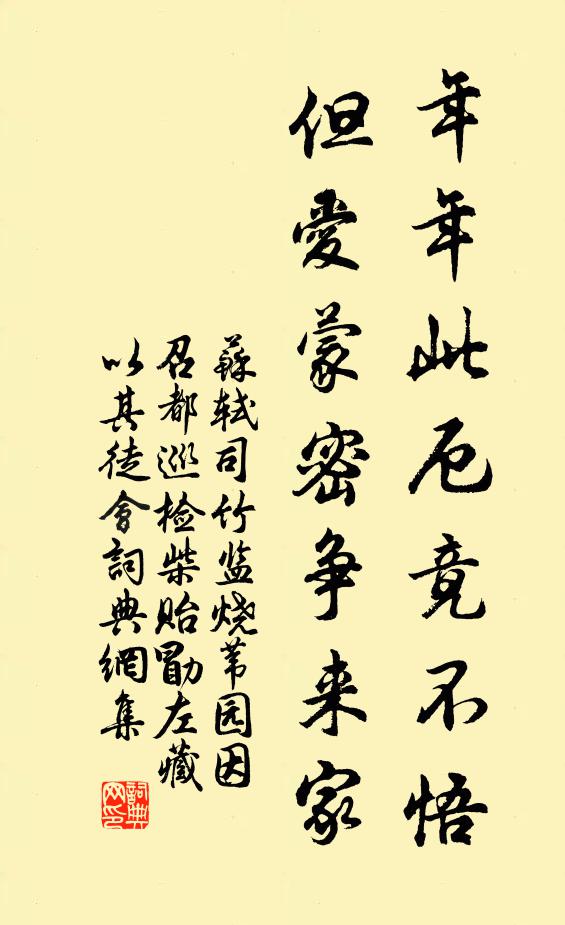 年年此厄竟不悟
但愛蒙密争来家
蘇轼司竹监烧苇园因
召都巡检柴贻勖左藏
以其徒會詞典網集
詞典网印